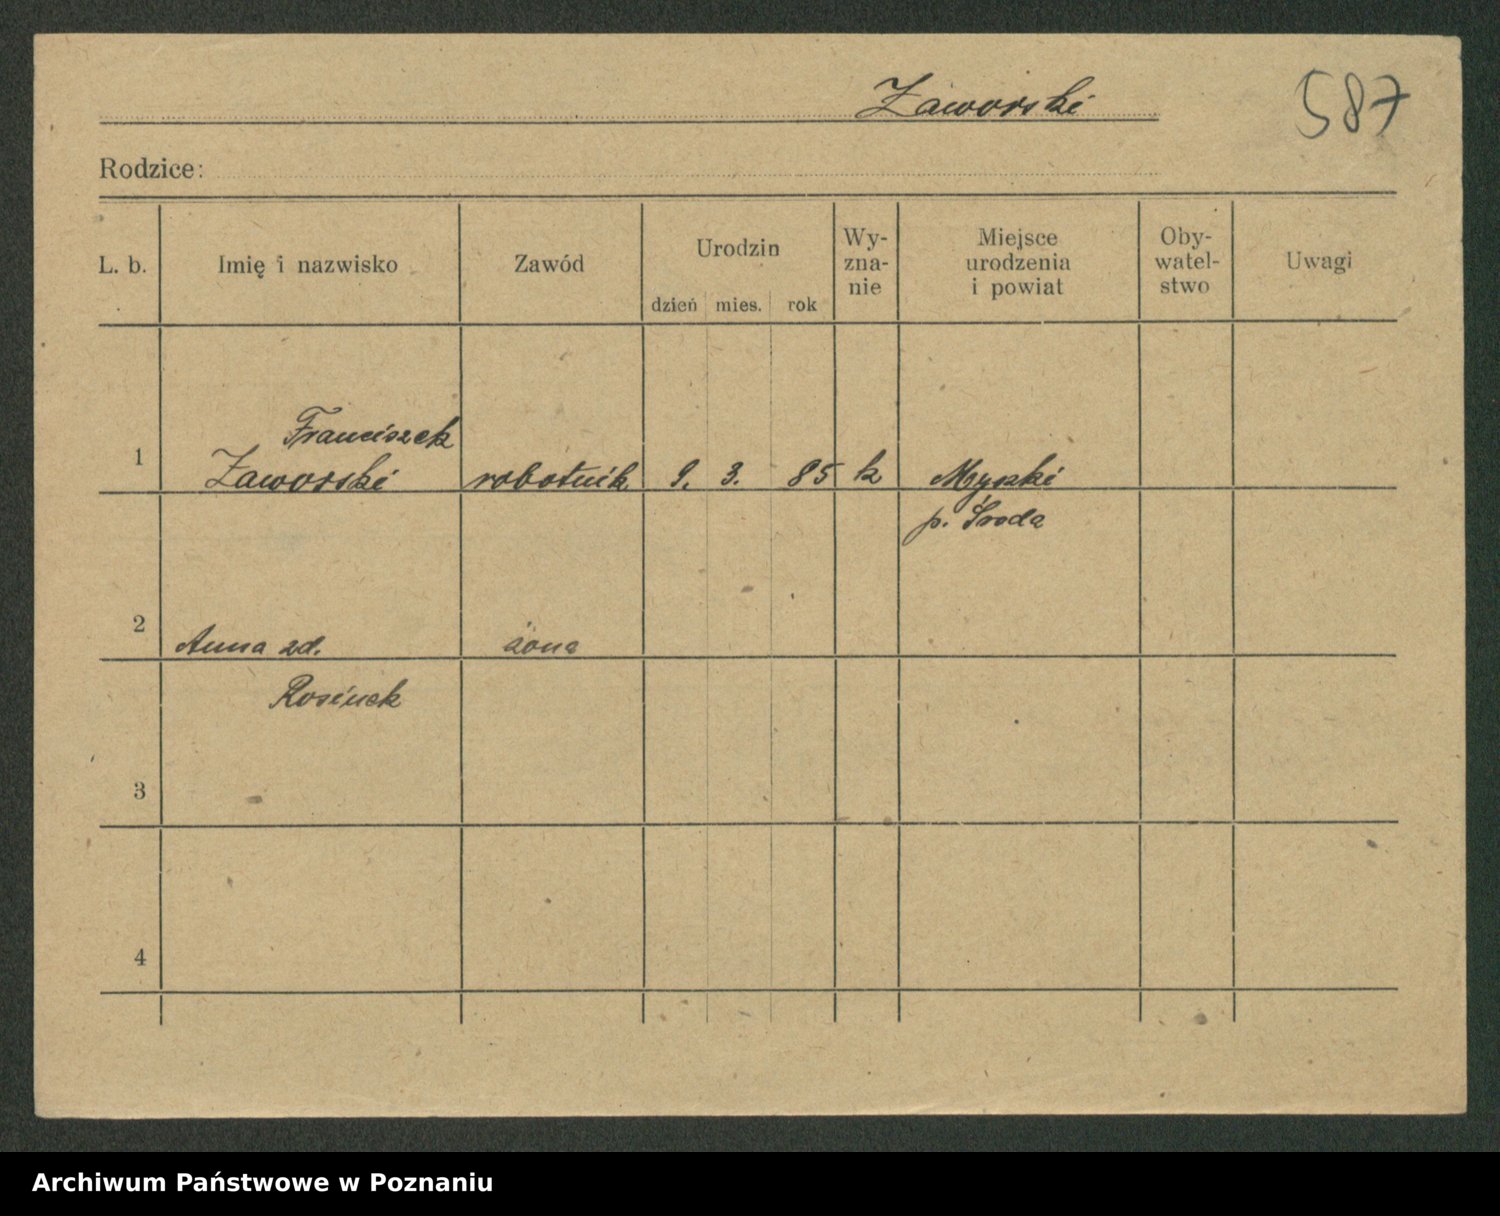 Zaworski
587
Rodzice:
L. b.
Imię i nazwisko
Zawód
Urodzin
dzień mies. rok
Wy-
zna-
nie
Miejsce
urodzenia
i powiat
Oby-
watel-
stwo
Uwagi
1
Franciszek
Zaworski
robotnik
9. 3. 85
k
p. Środa
2
Anna zd.
żona
Rosinek
3
4
Archiwum Państwowe w Poznaniu